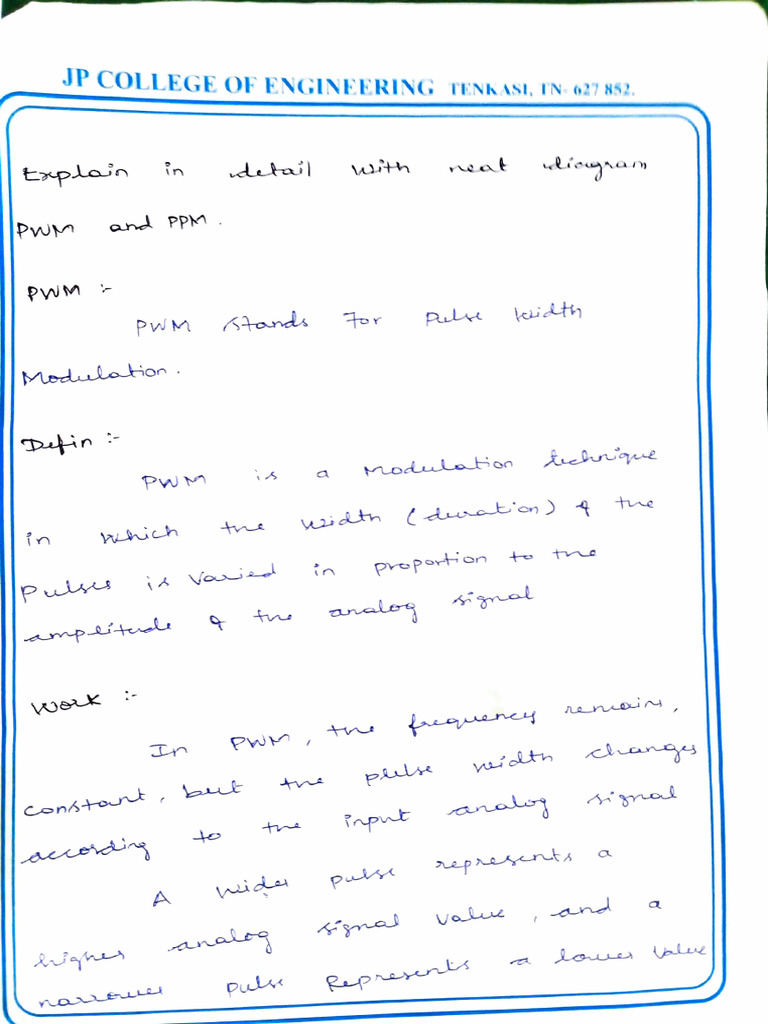 JP COLLEGE OF ENGINEERING TENKASI, TN- 627 852.
Explain in detail with neat diagram
PWM and PPM.
PWM :-
PWM stands for Pulse Width
Modulation.
Defin :-
PWM is a Modulation technique
in which the width (duration) of the
Pulses is varied in proportion to the
amplitude of the analog signal
Work :-
In PWM, the frequency remains,
constant, but the pulse width changes
according to the input analog signal
A wider pulse represents a
higher analog signal value, and a
narrower pulse Represents a lower value